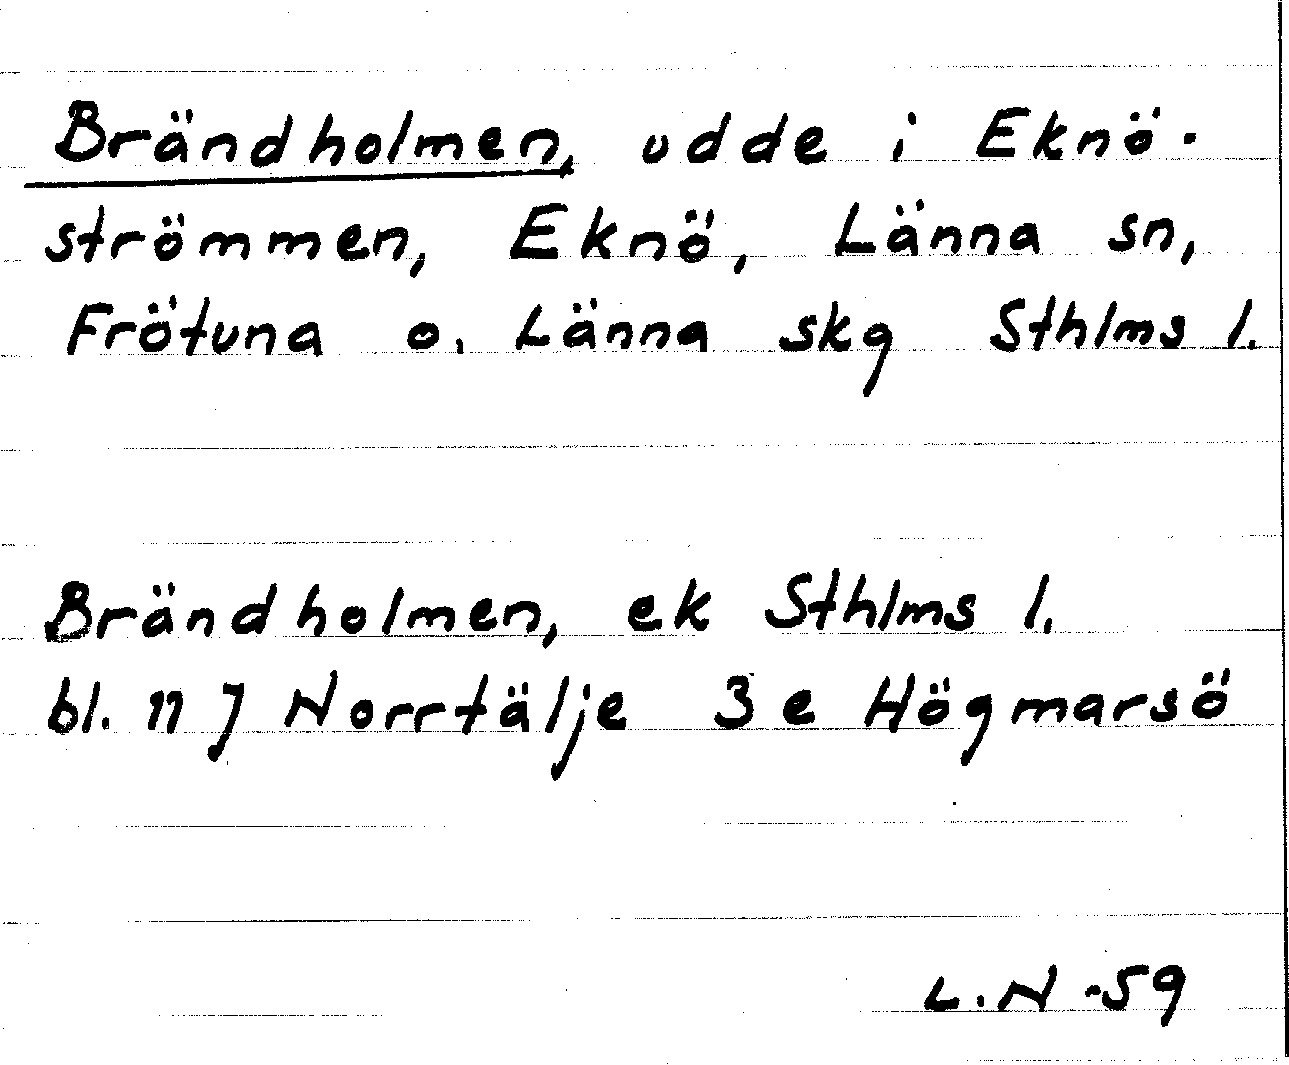 Brändholmen, udde i Eknö-
strömmen, Eknö, Länna sn,
Frötuna o. Länna skg Sthlms l.
Brändholmen, ek Sthlms l.
bl. 11 J Norrtälje 3 e Högmarsö
L.N -59